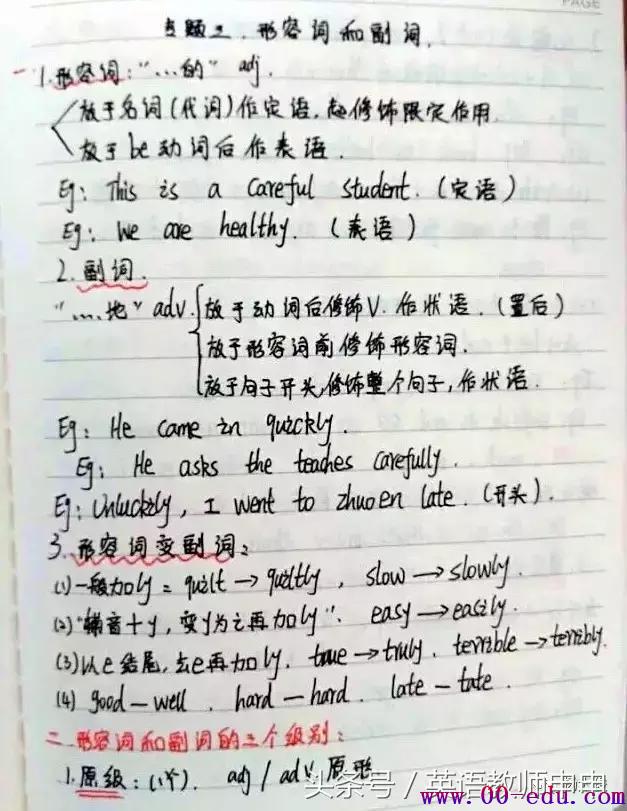 PAGE
专题二．形容词和副词．
一 1.形容词："…的" adj.
放于名词(代词)作定语，起修饰限定作用
放于be动词后作表语．
Eg: This is a careful student. (定语)
Eg: We are healthy. (表语)
2.副词．
"…地" adv. 放于动词后修饰V. 作状语．(置后)
放于形容词前修饰形容词．
放于句子开头,修饰整个句子，作状语．
Eg: He came in quickly.
Eg: He asks the teaches carefully.
Eg: Unluckily, I went to zhuoen late. (开头).
3.形容词变副词：
(1)一般加ly = quilt → quiltly , slow → slowly.
(2)"辅音+y，变y为i再加ly". easy → easily.
(3)以e结尾，去e再加ly. true → truly. terrible → terribly.
(4) good — well . hard — hard . late — late .
二.形容词和副词的三个级别：
1.原级：(1个). adj / adv 原形
头条号 / 英语教师由由
www.00-edu.com